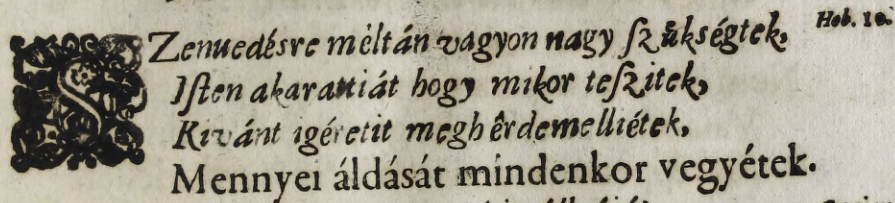 SZenuedésre méltán vagyon nagy ſzůkségtek, Heb. 10.
Iſten akarattiát hogy mikor teſzitek,
Kivánt igéretit megh êrdemelliétek,
Mennyei áldását mindenkor vegyétek.